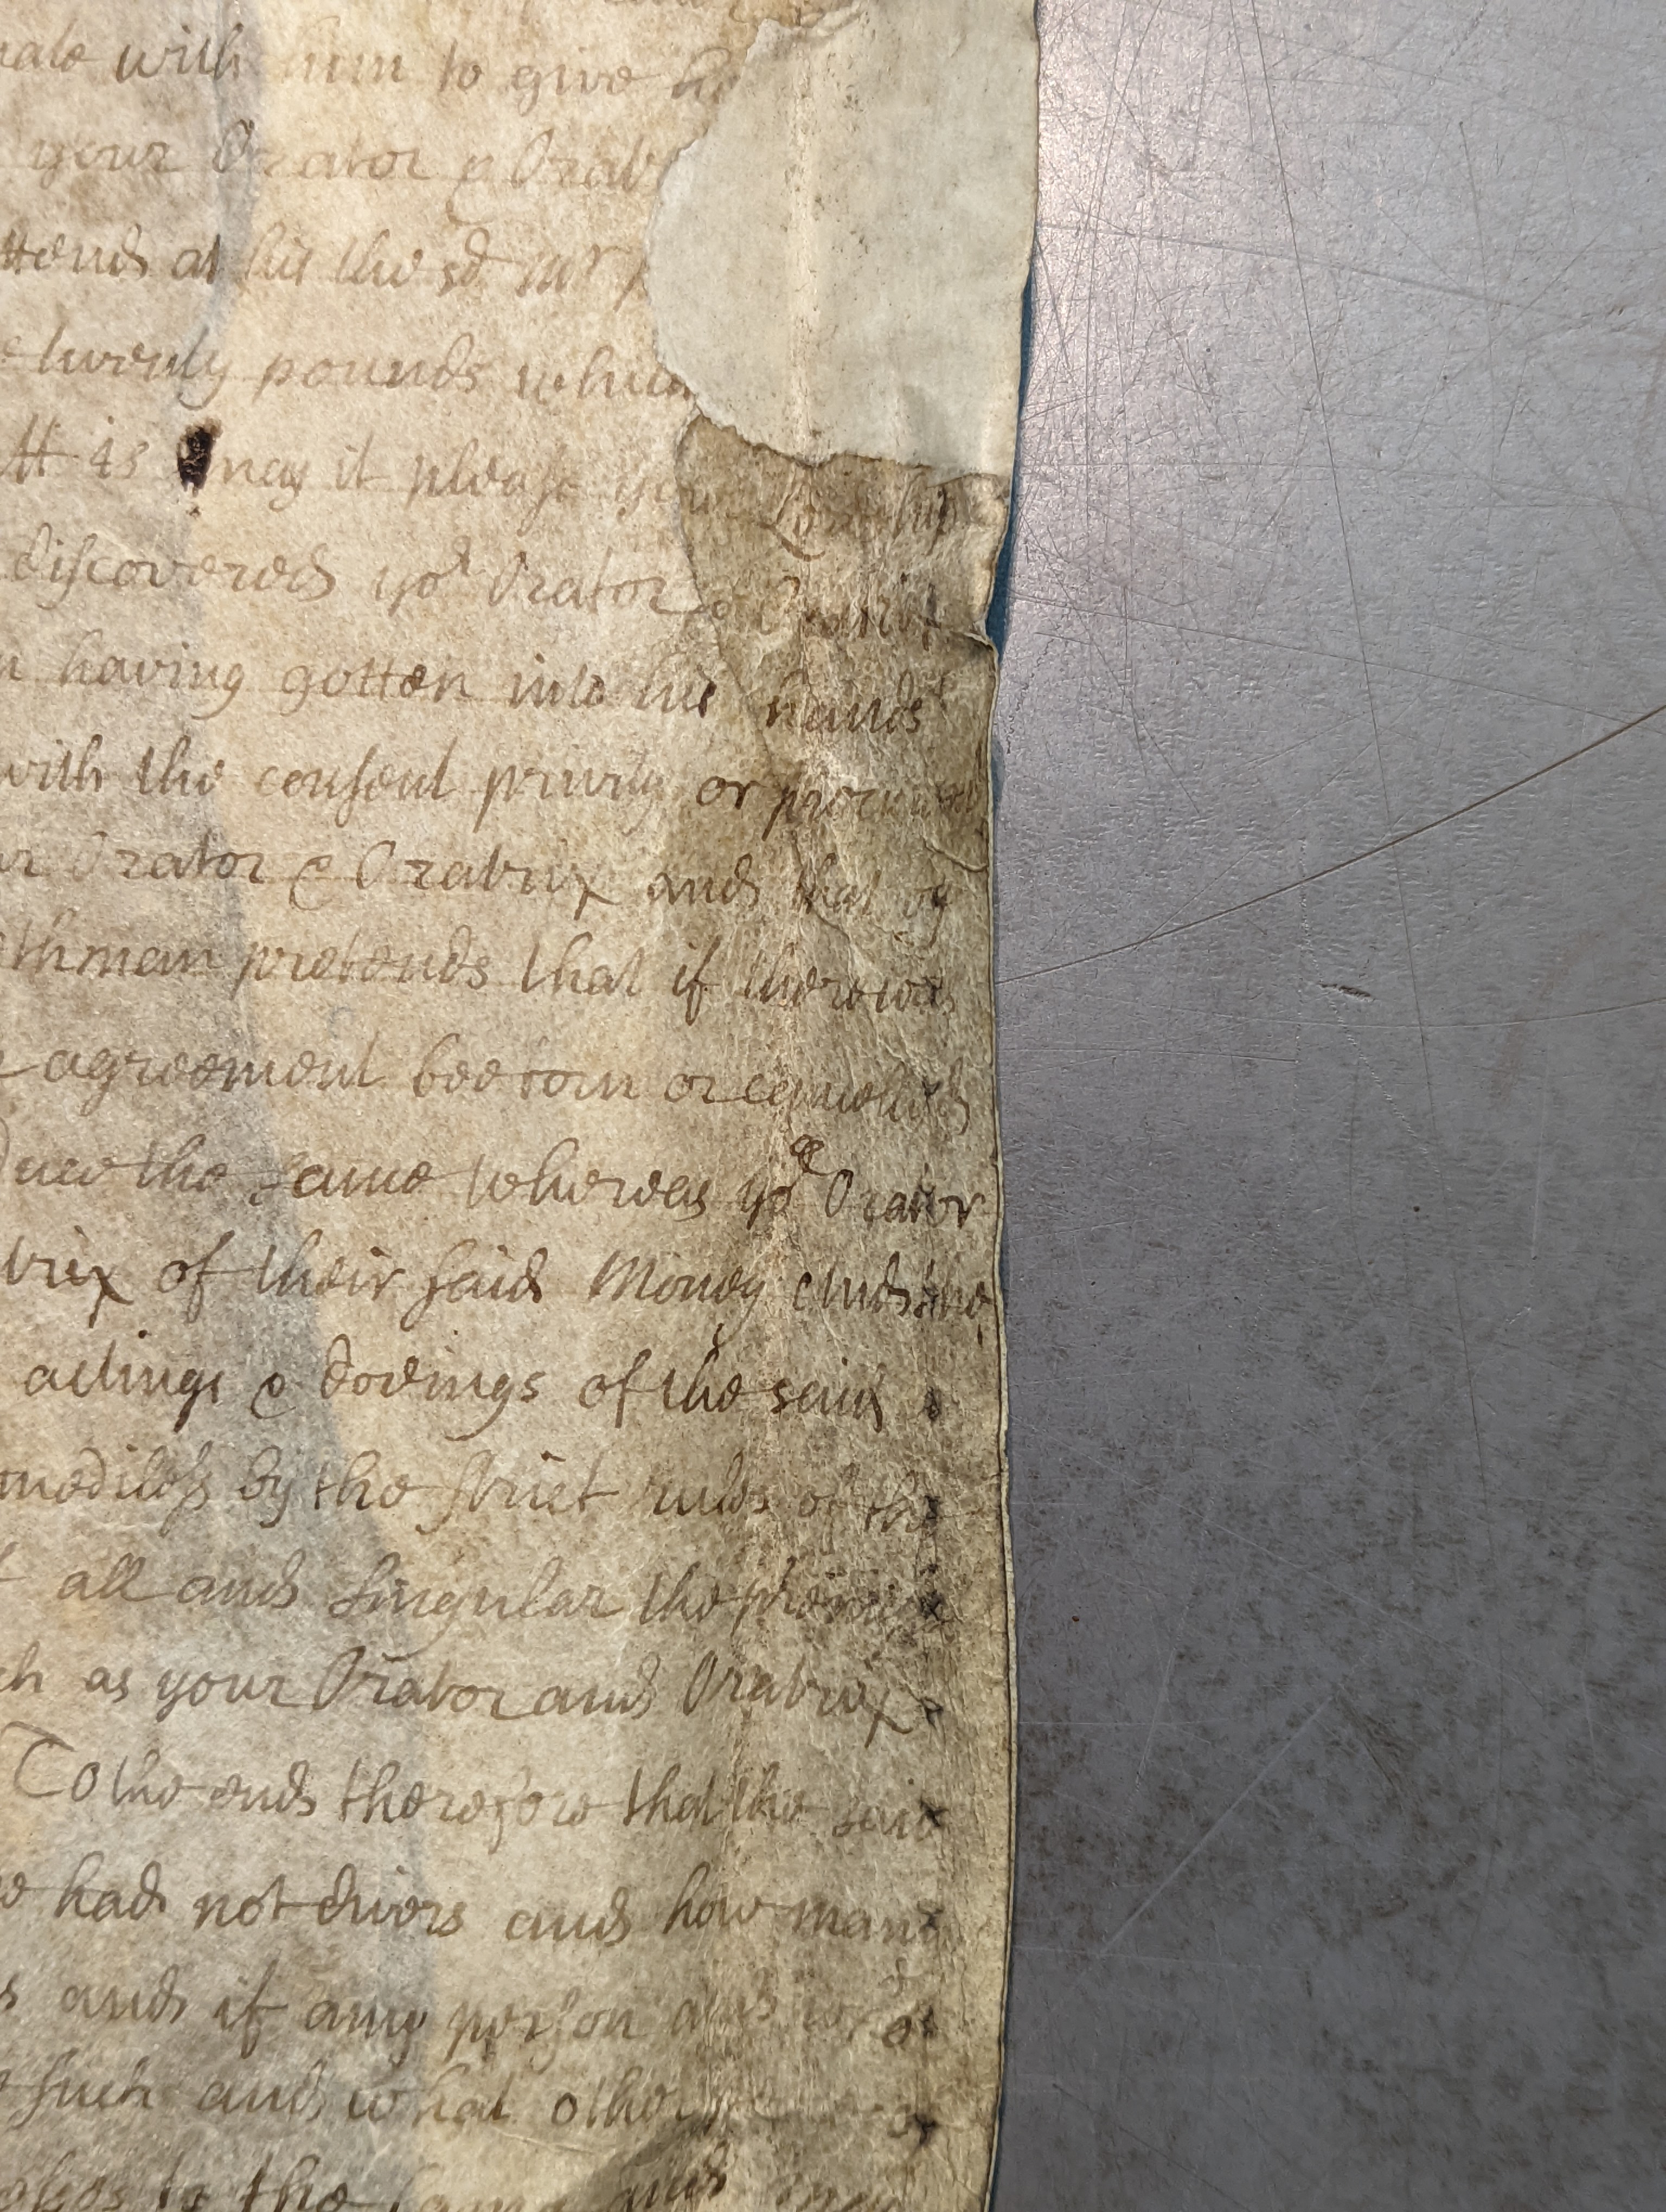 with him to give
your Orator & Orat
at his the sd Mr
twenty pounds which
It is may it please your Lordship
discovered yor Orator & Oratrix
having gotten into his hands
with the consent privity or
Orator & Oratrix and that
thman pretends that if there was
agreement bee torn or cancelled
the same whereas yor Orator
trix of their said Money And the
actings & doeings of the said
mediless by the strict rules of the
all and singular the
as your Orator and Oratrix
To the end therefore that the said
had not divers and how many
and if any person and
such and what other
to the same and